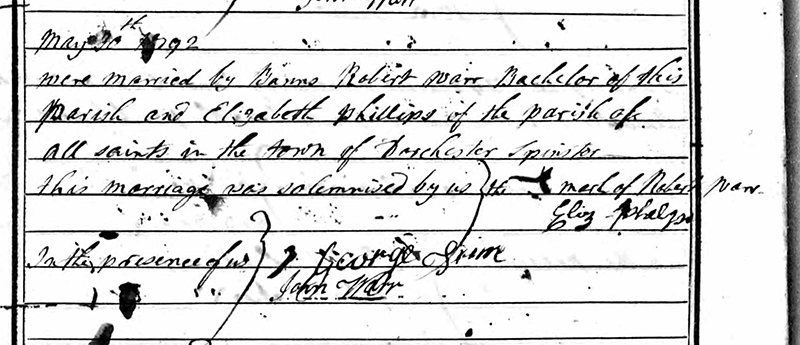 May 30th 1792
were married by Banns Robert Warr Bachelor of this
Parish and Elizabeth Phillips of the parish of
all saints in the town of Dorchester Spinster
this marriage was solemnised by us } the mark of Robert Warr
Eliz Phelps
In the presence of us } George
John Warr